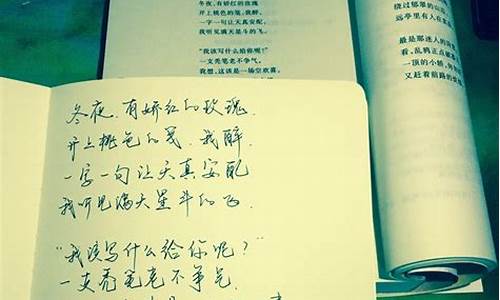 冬夜,有娇红的玫瑰
开上桃色的笺,我醉,
一字一句让天真安配,
我听见满天星斗的飞。
"我该写什么给你呢?"
一支秃笔老不争气,
我想,这该是一场空欢喜。
绕过郁翠的山
远亭里有人在
最是那迷人的
看,乱鸦正点
一顶的小轿,
又赶着前路的
冬夜,有娇红的玫瑰,
开上桃色的笺,我醉,
一字一句让天真安配
我听见满天星斗的飞
"我该写什么给你呢?"
一支秃笔老不争气,